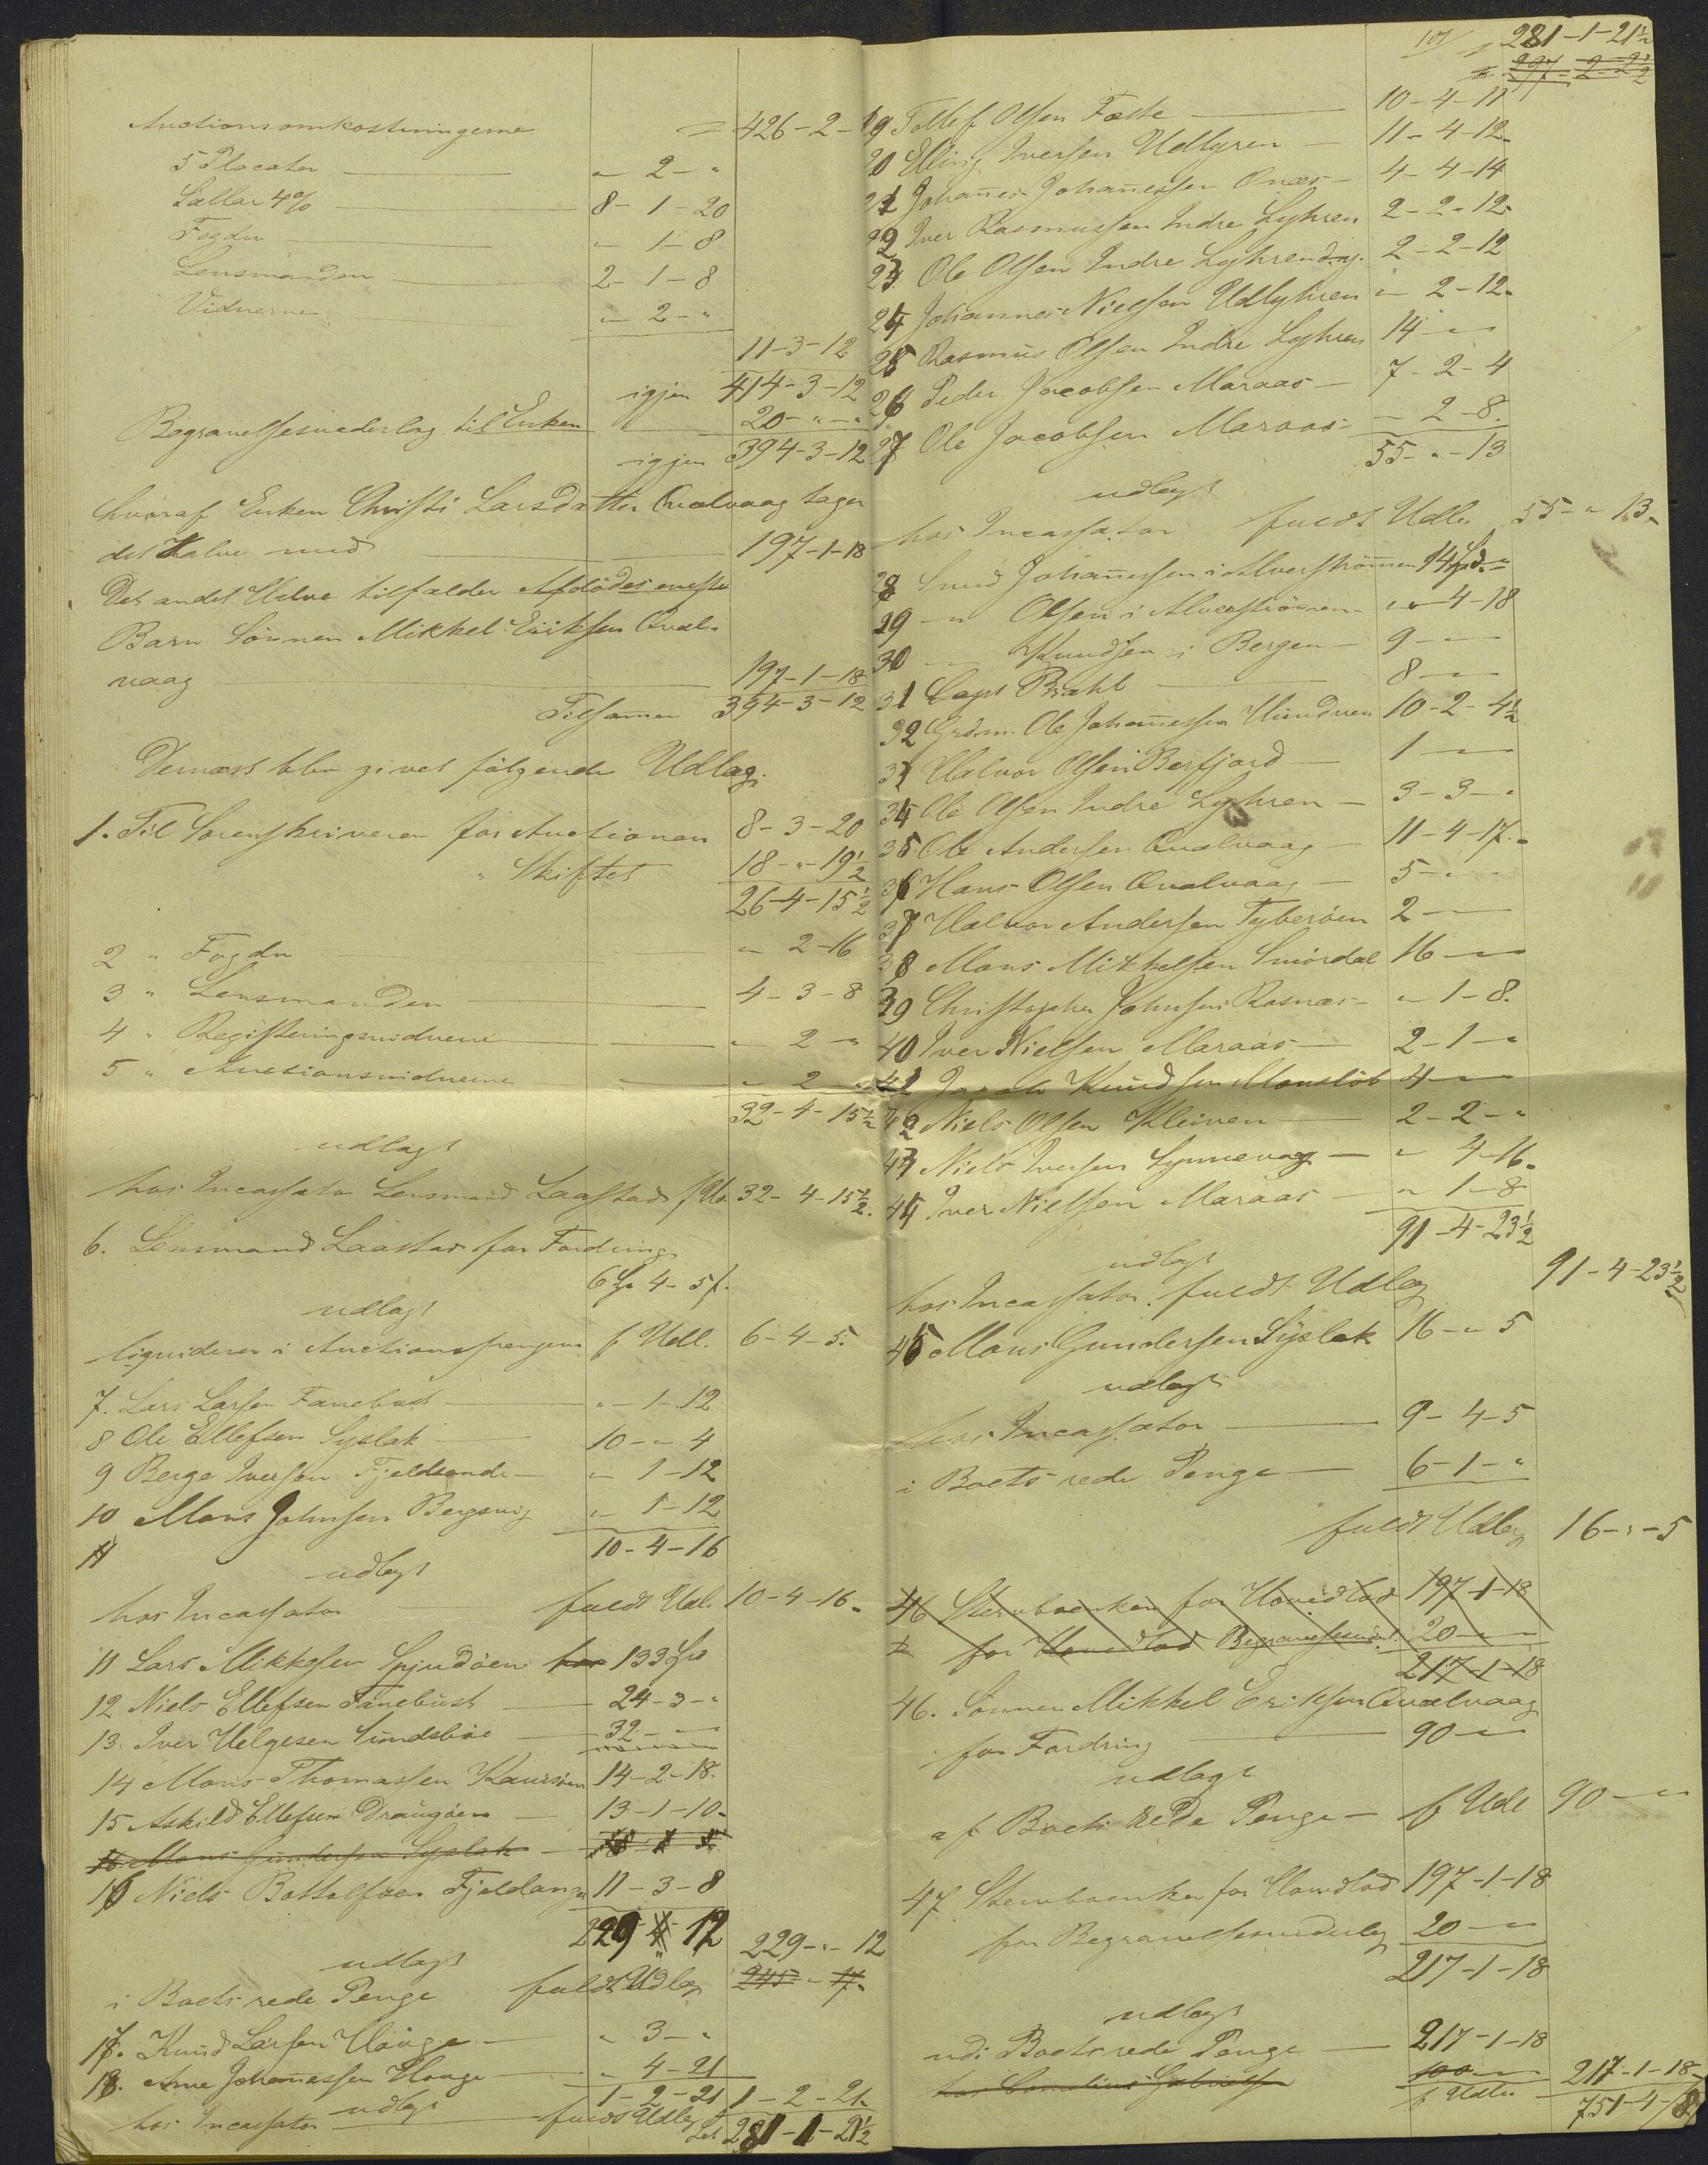 Auctionsomkostningerne 426-2-
5 Placater " 2 - "
Sallar 4% 8-1-20
Fogden " 1-8
Lensmanden 2-1-8
Vidnerne " 2-"
11-3-12
igjen 414-3-12
Begravelsesvederlag til Enken 20-"-"
igjen 394-3-12
hvoraf Enken Christi Larsdatter Qvalvaag tager
det Halve med 197-1-18
Det andet Halve tilfalder Afdødes eneste
Barn Sønnen Mikkel Eriksen Qval-
vaag 197-1-18
Tilsamen 394-3-12
Dernæst blev givet følgende Udlæg.
1. Til Sorenskriveren for Auctionen 8-3-20
" Skiftet 18-"-19½
26-4-15½
2 " Fogden " 2-16
3 " Lensmanden 4-3-8
4 " Registeringsvidnerne " 2 "
5 " Auctionsvidnerne " 2 "
32-4-15½
udlagt
hos Incassator Lensmand Laastad f Ud. 32-4-15½.
6. Lensmand Laastad for Fordring
6 Spd 4-5 s.
udlagt
liquiderer i Auctionspengene f Udl. 6-4-5.
7. Lars Larsen Fanebust "-1-12
8 Ole Ellefsen Syslak 10-"-4
9 Berge Iversen Fjeldsende " 1-12
10 Mons Johnsen Bergsvig " 1-12
11 10-4-16
udlagt
hos Incassator fuldt Udl. 10-4-16.
11 Lars Mikkelsen Spjudøen hos 133 Spd
12 Niels Ellefsen Fanebust 24-3-"
13 Iver Helgesen Sundsbøe 32-"-
14 Mons Thomassen Kaursøen 14-2-18.
15 Askild Ellefsen Draugøen 13-1-10.
16 Mons Gundersen Syslak
16 Niels Bottolfsen Fjeldanger 11-3-8
229 " 12
udlagt 229-"-12
i Boets rede Penge fuldt Udlæg 245 - 17.
17. Knud Larsen Houge " 3-"
18. Arne Johannessen Houge " 4-21
udlagt 1-2-21 1-2-21.
hos Incassator fuldt Udlæg Lat 281-1-21½
281-1-21½
297-2-2½
19 Tollef Olsen Foste 10-4-11
20 Elling Iversen Udlygren 11-4-12.
21 Johannes Johannessen Qnæs 4-4-14
22 Iver Rasmussen Indre Lyhren 2-2-12.
23 Ole Olsen Indre Lyhren d. y. 2-2-12
24 Johannes Nielsen Udlyhren " 2-12.
25 Rasmus Olsen Indre Lyhren 14-"-
26 Peder Jacobsen Maraas 7-2-4
27 Ole Jacobsen Maraas " 2-8.
55-"-13
udlagt
hos Incassator fuldt Udlæg 55-"-13.
28 Knud Johannessen i Alverstrømmen 14 Spd. "
29 " Olsen i Alverstrømmen " 4-18
30 " Knudsen i Bergen 9-"-
31 Capt Brahl 8-"-
32 Grdm. Ole Johannessen Hundven 10-2-4½
33 Halvor Olsen Berfjord 1-"-
34 Ole Olsen Indre Lyhren 3-3-"
35 Ole Andersen Qvalvaag 11-4-17.
36 Hans Olsen Qvalvaag 5-"-
37 Halvor Andersen Tyberøen 2-"-
38 Mons Mikkelsen Smørdal 16-"-
39 Christopher Johnsen Rosnæs "-1-8.
40 Iver Nielsen Maraas 2-1-"
41 Jacob Knudsen Monsløb 4-"-
42 Niels Olsen Kleiven 2-2-"
43 Niels Iversen Synnevag " 4-16.
44 Iver Nielsen Maraas " 1-8
91-4-23½
udlagt
hos Incassator fuldt Udlæg 91-4-23½
45 Mons Gundersen Syslak 16-"-5
udlagt
hos Incassator 9-4-5
i Boets rede Penge 6-1-"
fuldt Udlæg 16-"-5
46 Stervboenken for Hovedlod 197-1-18
for Hovedlod Begravelsesvedl. 20-"-
217-1-18
46. Sønnen Mikkel Eriksen Qvalvaag
for Fordring 90-"-
udlagt
af Boets rede Penge f Udl 90-"-
47 Stervboenken for Hovedlod 197-1-18
for Begravelsesvederlag 20-"-
217-1-18
udlagt
udi Boets rede Penge 217-1-18
hos Cornelius Gabrielsen 100-"- 217-1-18.
f Udlæg 751-4-8